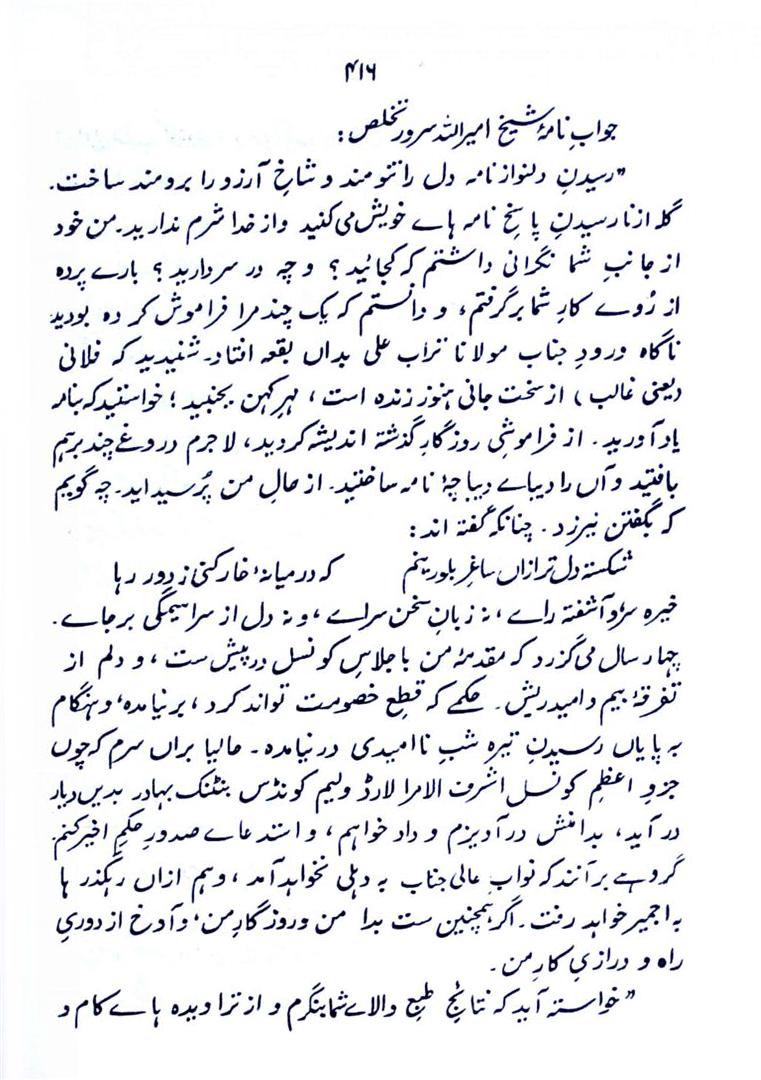 ۴۱۶
جوابِ نامۂ شیخ امیر اللہ سرور تخلص:
"رسیدنِ دلنواز نامہ دل را تنومند و شاخِ آرزو را برومند ساخت۔
گلہ از نارسیدنِ پاسخِ نامہ ہاے خویش می کنید و از خدا شرم ندارید۔ من خود
از جانبِ شما نگرانی داشتم کہ کجائید؟ و چہ در سر دارید؟ بارے پردہ
از رُوے کارِ شما برگرفتم، و دانستم کہ یک چند مرا فراموش کردہ بودید
ناگاہ ورودِ جناب مولانا تراب علی بداں بقعہ افتاد۔ شنیدید کہ فلانی
(یعنی غالب) از سخت جانی ہنوز زندہ است، مہرِ کہن بجنبید؛ خواستید کہ بنامہ
یاد آورید۔ از فراموشیِ روزگارِ گذشتہ اندیشہ کردید، لاجرم دروغے چند برہم
بافتید و آں را دیباے دیباچۂ نامہ ساختید۔ از حالِ من پُرسیدہ اید۔ چہ گویم
کہ بگفتن نیرزد۔ چنانکہ گفتہ اند:
شکستہ دل تر ازاں ساغرِ بلورینم کہ درمیانۂ خارا کنی ز دور رہا
خیرہ سر و آشفتہ راے، نہ زبانِ سخن سراے، و نہ دل از سراسیمگی برجاے۔
چہار سال می گزرد کہ مقدمۂ من باجلاسِ کونسل در پیش ست، و دلم از
تفرقۂ بیم و امید ریش۔ حکمے کہ قطعِ خصومت تواند کرد، برنیامدہ، و ہنگام
بہ پایاں رسیدنِ تیرہ شبِ ناامیدی در نیامدہ۔ حالیا براں سرم کہ چوں
جزوِ اعظمِ کونسل اشرف الامرا لارڈ ولیم کونڈس بنٹنک بہادر بدیں دیار
در آید، بدامنش در آویزم و داد خواہم، و استدعاے صدورِ حکمِ اخیر کنم۔
گروہے برآنند کہ نواب عالی جناب بہ دہلی نخواہد آمد، وہم ازاں رہگذر ہا
بہ اجمیر خواہد رفت۔ اگر ہمچنین ست بدا من و روزگارِ من، و آوخ از دوریِ
راہ و درازیِ کارِ من۔
"خواستہ آید کہ نتائجِ طبعِ والاے شما بنگرم و از تراویدہ ہاے کام و